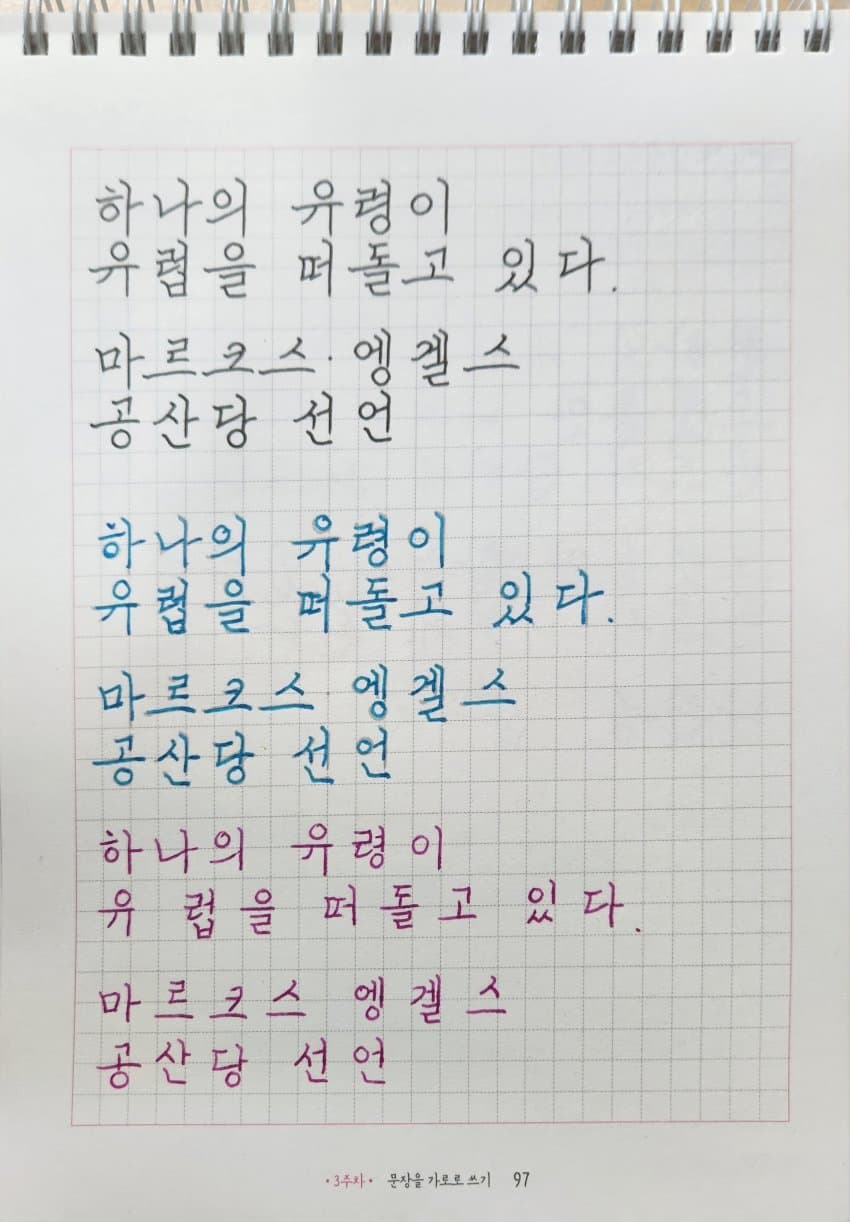 하나의 유령이
유럽을 떠돌고 있다.
마르크스·엥겔스
공산당 선언
하나의 유령이
유럽을 떠돌고 있다.
마르크스·엥겔스
공산당 선언
하나의 유령이
유 럽을 떠돌고 있다.
마르크스 엥겔스
공산당 선언
•3주차• 문장을 가로로 쓰기 97